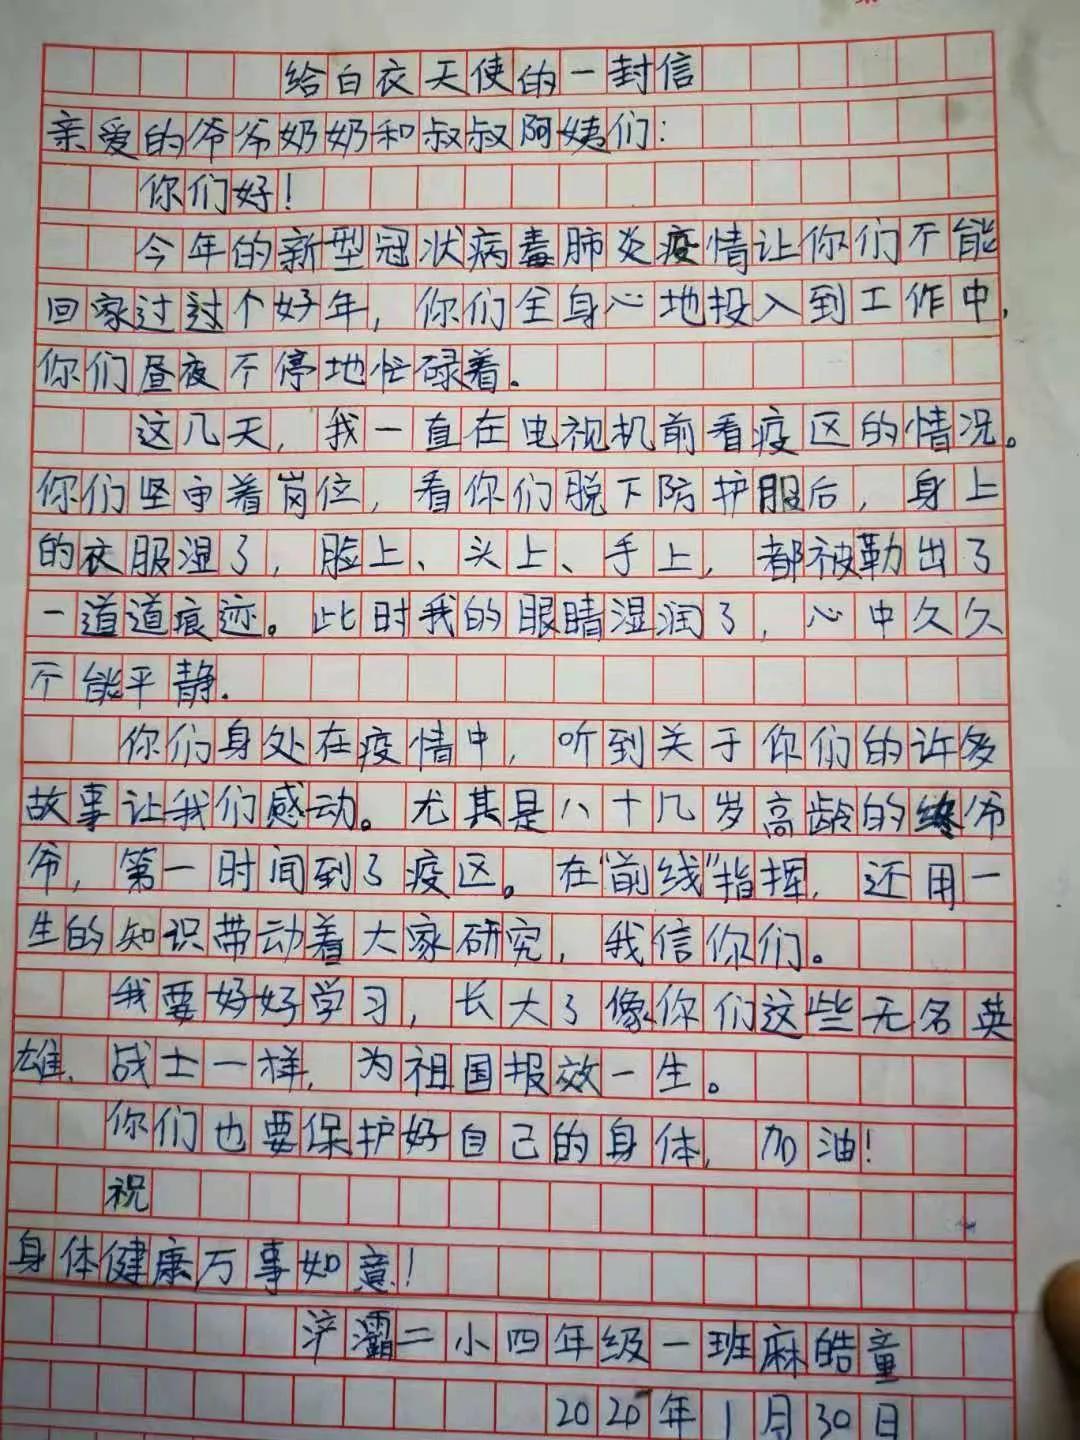 给白衣天使的一封信
亲爱的爷爷奶奶和叔叔阿姨们：
你们好！
今年的新型冠状病毒肺炎疫情让你们不能
回家过过个好年，你们全身心地投入到工作中，
你们昼夜不停地忙碌着。
这几天，我一直在电视机前看疫区的情况。
你们坚守着岗位，看你们脱下防护服后，身上
的衣服湿了，脸上、头上、手上，都被勒出了
一道道痕迹。此时我的眼睛湿润了，心中久久
不能平静。
你们身处在疫情中，听到关于你们的许多
故事让我们感动。尤其是八十几岁高龄的爷
爷，第一时间到了疫区。在“前线”指挥，还用一
生的知识带动着大家研究，我信你们。
我要好好学习，长大了像你们这些无名英
雄、战士一样，为祖国报效一生。
你们也要保护好自己的身体，加油！
祝
身体健康万事如意！
浐灞二小四年级一班麻皓童
2020年1月30日